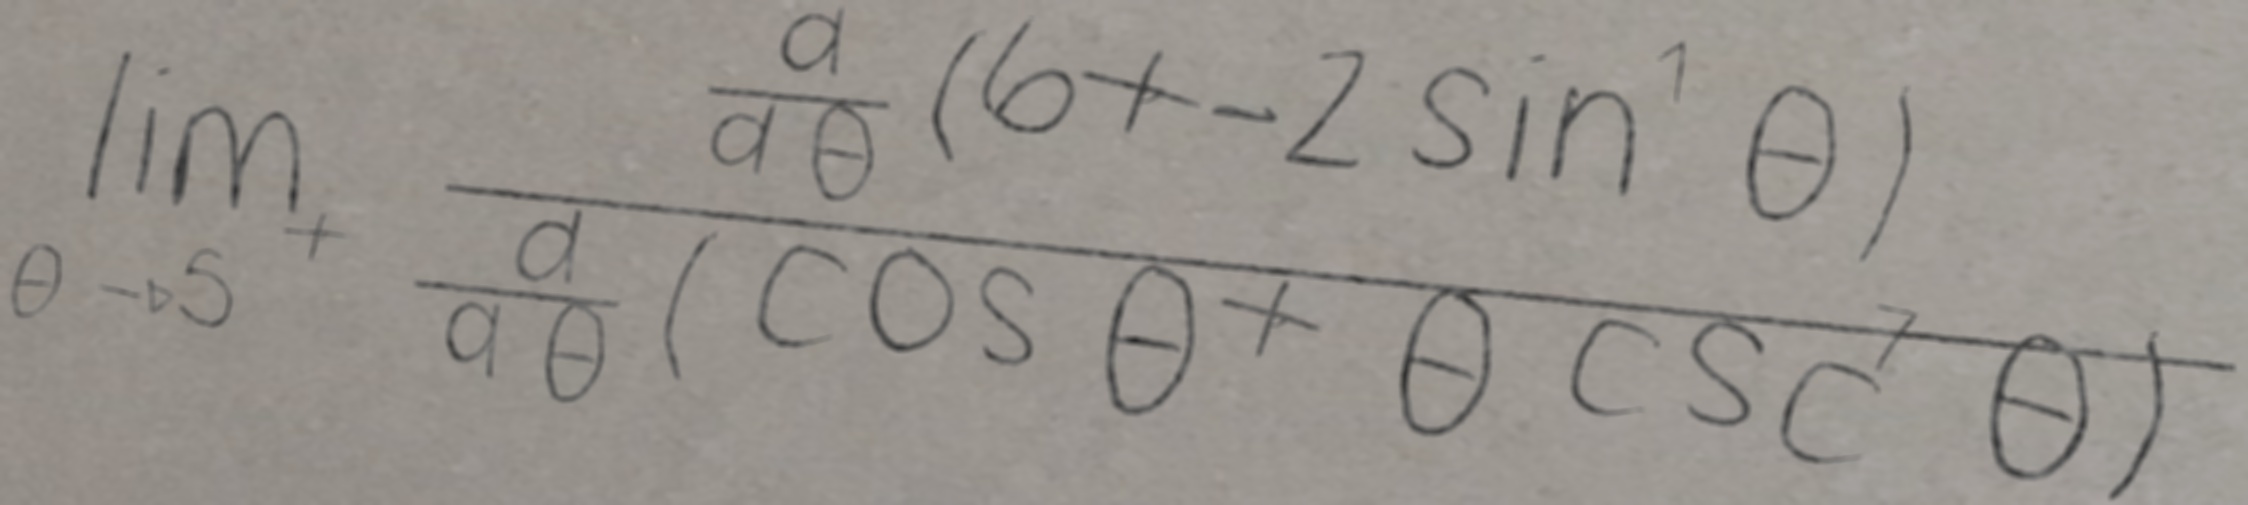 \lim_{\theta \to 5^+} \frac{\frac{d}{d\theta}(6+-2\sin^1 \theta)}{\frac{d}{d\theta}(\cos \theta + \theta \csc^7 \theta)}